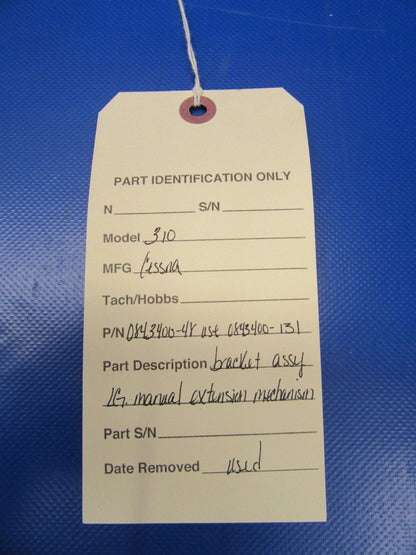 PART IDENTIFICATION ONLY
N S/N
Model 310
MFG Cessna
Tach/Hobbs
P/N 0843400-48 use 0843400-131
Part Description bracket assy
LG. manual extension mechanism
Part S/N
Date Removed used